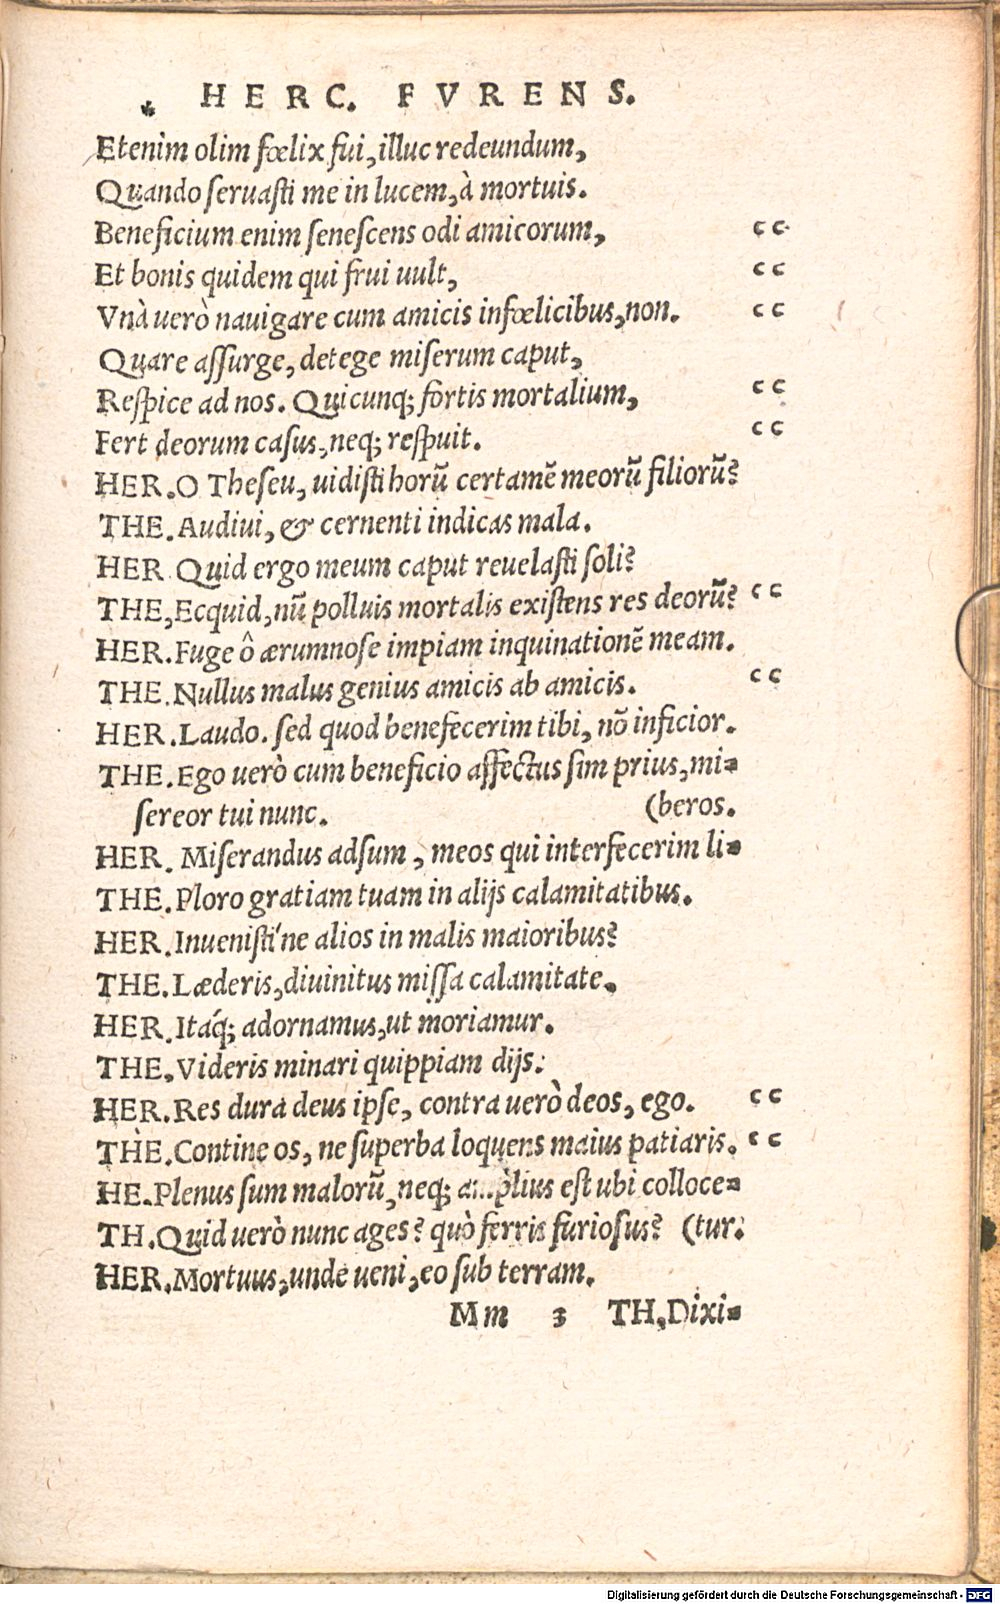 HERC. FVRENS.
Etenim olim fœlix fui, illuc redeundum,
Quando ſeruaſti me in lucem, à mortuis.
Beneficium enim ſeneſcens odi amicorum, cc
Et bonis quidem qui frui uult, cc
Vnà uerò nauigare cum amicis infœlicibus, non. cc
Quare aſſurge, detege miſerum caput,
Reſpice ad nos. Quicunq; fortis mortalium, cc
Fert deorum caſus, neq; reſpuit. cc
HER. O Theſeu, uidiſti horū certamē meorū filiorū?
THE. Audiui, & cernenti indicas mala.
HER Quid ergo meum caput reuelaſti ſoli?
THE, Ecquid, nū polluis mortalis exiſtens res deorū? cc
HER. Fuge ô ærumnoſe impiam inquinationē meam.
THE. Nullus malus genius amicis ab amicis. cc
HER. Laudo. ſed quod benefecerim tibi, nō inficior.
THE. Ego uerò cum beneficio affectus ſim prius, mi-
ſereor tui nunc. (beros.
HER. Miſerandus adſum, meos qui interfecerim li-
THE. Ploro gratiam tuam in alijs calamitatibus.
HER. Inueniſti'ne alios in malis maioribus?
THE. Læderis, diuinitus miſſa calamitate.
HER. Itáq; adornamus, ut moriamur.
THE. Videris minari quippiam dijs.
HER. Res dura deus ipſe, contra uerò deos, ego. cc
THE. Contine os, ne ſuperba loquens maius patiaris. cc
HE. Plenus ſum malorū, neq; eſt ubi colloce-
TH. Quid uerò nunc ages? quò ferris furioſus? (tur.
HER. Mortuus, unde ueni, eo ſub terram.
Mm 3 TH. Dixi-
Digitalisierung gefördert durch die Deutsche Forschungsgemeinschaft - DFG